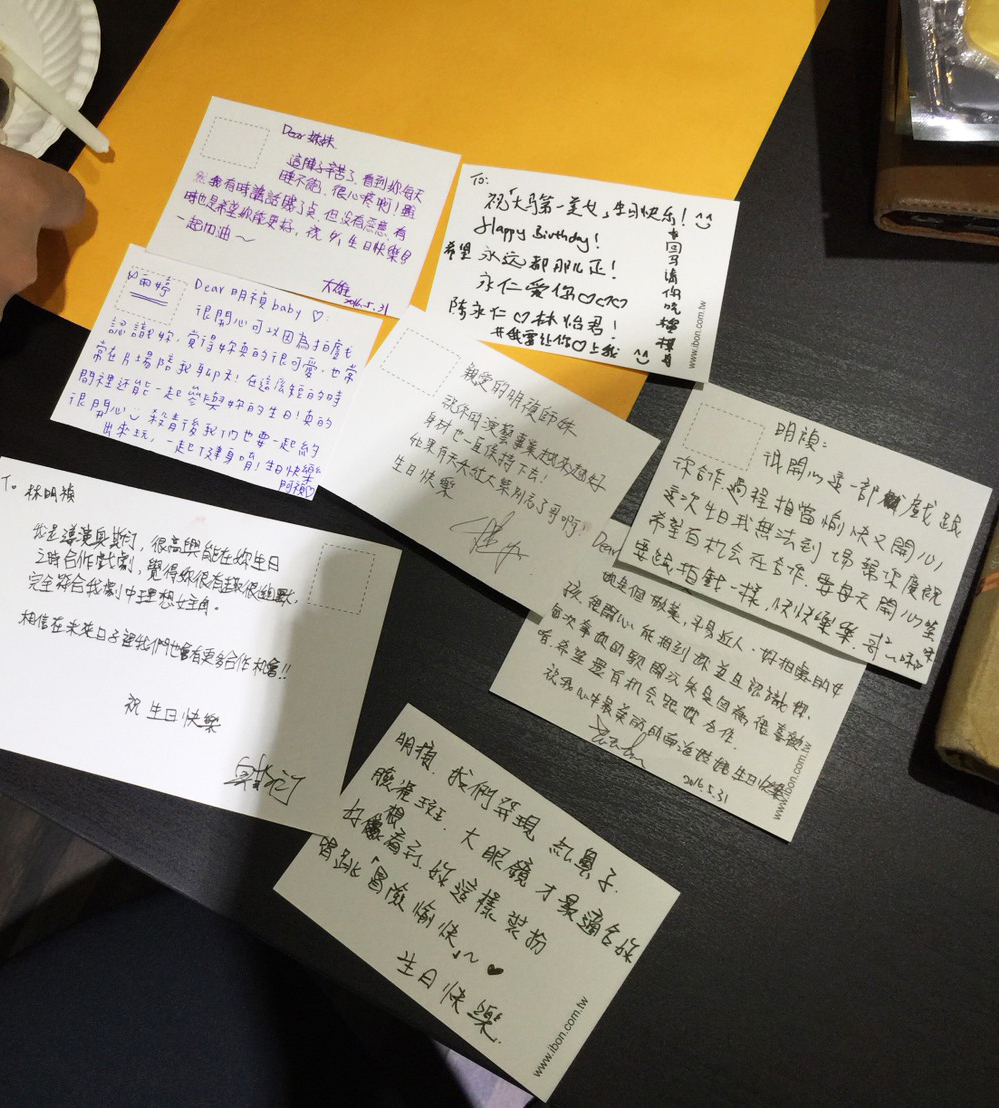 Dear 妹妹
這陣子辛苦了, 看到妳每天
睡不飽, 很心疼啊! 雖
然我有時講話賤了点, 但沒有惡意, 有
時也是希望妳能更好, 祝你 生日快樂
一起加油~
大雄
2016.5.31
To:
祝「大马第一美女」生日快乐! ^^
Happy Birthday!
希望 永远都那么正!
永仁爱你♡♡♡
陈永仁♡林怡君!
www.ibon.com.tw
雨婷
Dear 明禎baby ♡:
很開心可以因為拍戲
認識妳, 覺得妳真的很可愛, 也常
常在片場陪我聊天! 在這么短的時
間裡还能一起參與妳的生日! 真的
很開心 殺青後我们也要一起約
出來玩, 一起健身唷! 生日快樂
阿禎♡
親愛的明禎師妹
祝你的演藝事業越來越好
身材也一直保持下去!
如果有天大红大紫別忘了哥啊!
生日快樂
明禎:
很開心這一部戲跟
你合作, 過程相當愉快又開心,
這次生日我無法到場幫你慶祝
希望有机会在合作. 要每天開心笑
要跟拍戲一樣, 快快樂樂
To 林明禎
我是導演奧斯汀, 很高興能在妳生日
之時合作戲劇, 覺得妳很有趣很幽默,
完全符合我劇中理想女主角。
相信在未來日子裡我們也會有更多合作機會!!
祝 生日快樂
Dear
她是個敬業, 平易近人, 好相處的女
孩, 很開心能相到妳並且認識妳.
每次拿妳的歌開玩笑是因為很喜歡
唷, 希望還有机会跟妳合作.
祝我心中最美丽的南海姑娘生日快樂
2016.5.31
www.ibon.com.tw
明禎, 我們發現 紅鼻子.
臉雀斑. 大眼鏡 才最適合妳
好想看到妳這樣裝扮
唱跳「冒險愉快」~ ♥
生日快樂.
www.ibon.com.tw